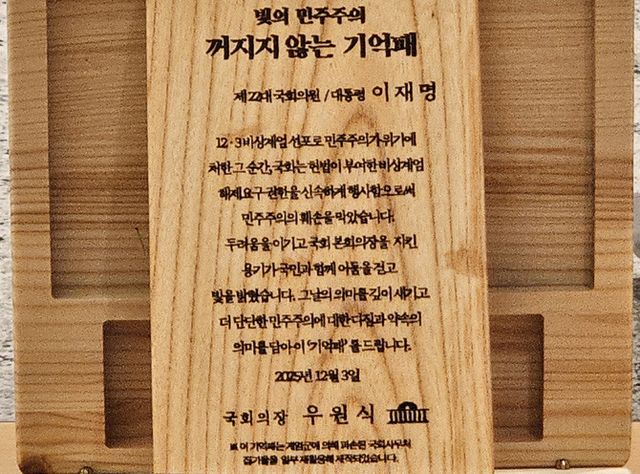 빛의 민주주의
꺼지지 않는 기억패
제22대 국회의원 / 대통령 이재명
12·3 비상계엄 선포로 민주주의가 위기에
처한 그 순간, 국회는 헌법이 부여한 비상계엄
해제요구 권한을 신속하게 행사함으로써
민주주의의 훼손을 막았습니다.
두려움을 이기고 국회 본회의장을 지킨
용기가 국민과 함께 어둠을 걷고
빛을 밝혔습니다. 그날의 의미를 깊이 새기고
더 단단한 민주주의에 대한 다짐과 약속의
의미를 담아 이 '기억패'를 드립니다.
2025년 12월 3일
국회의장 우원식
※ 이 기억패는 계엄군에 의해 파손된 국회사무처
집기들을 일부 재활용해 제작되었습니다.